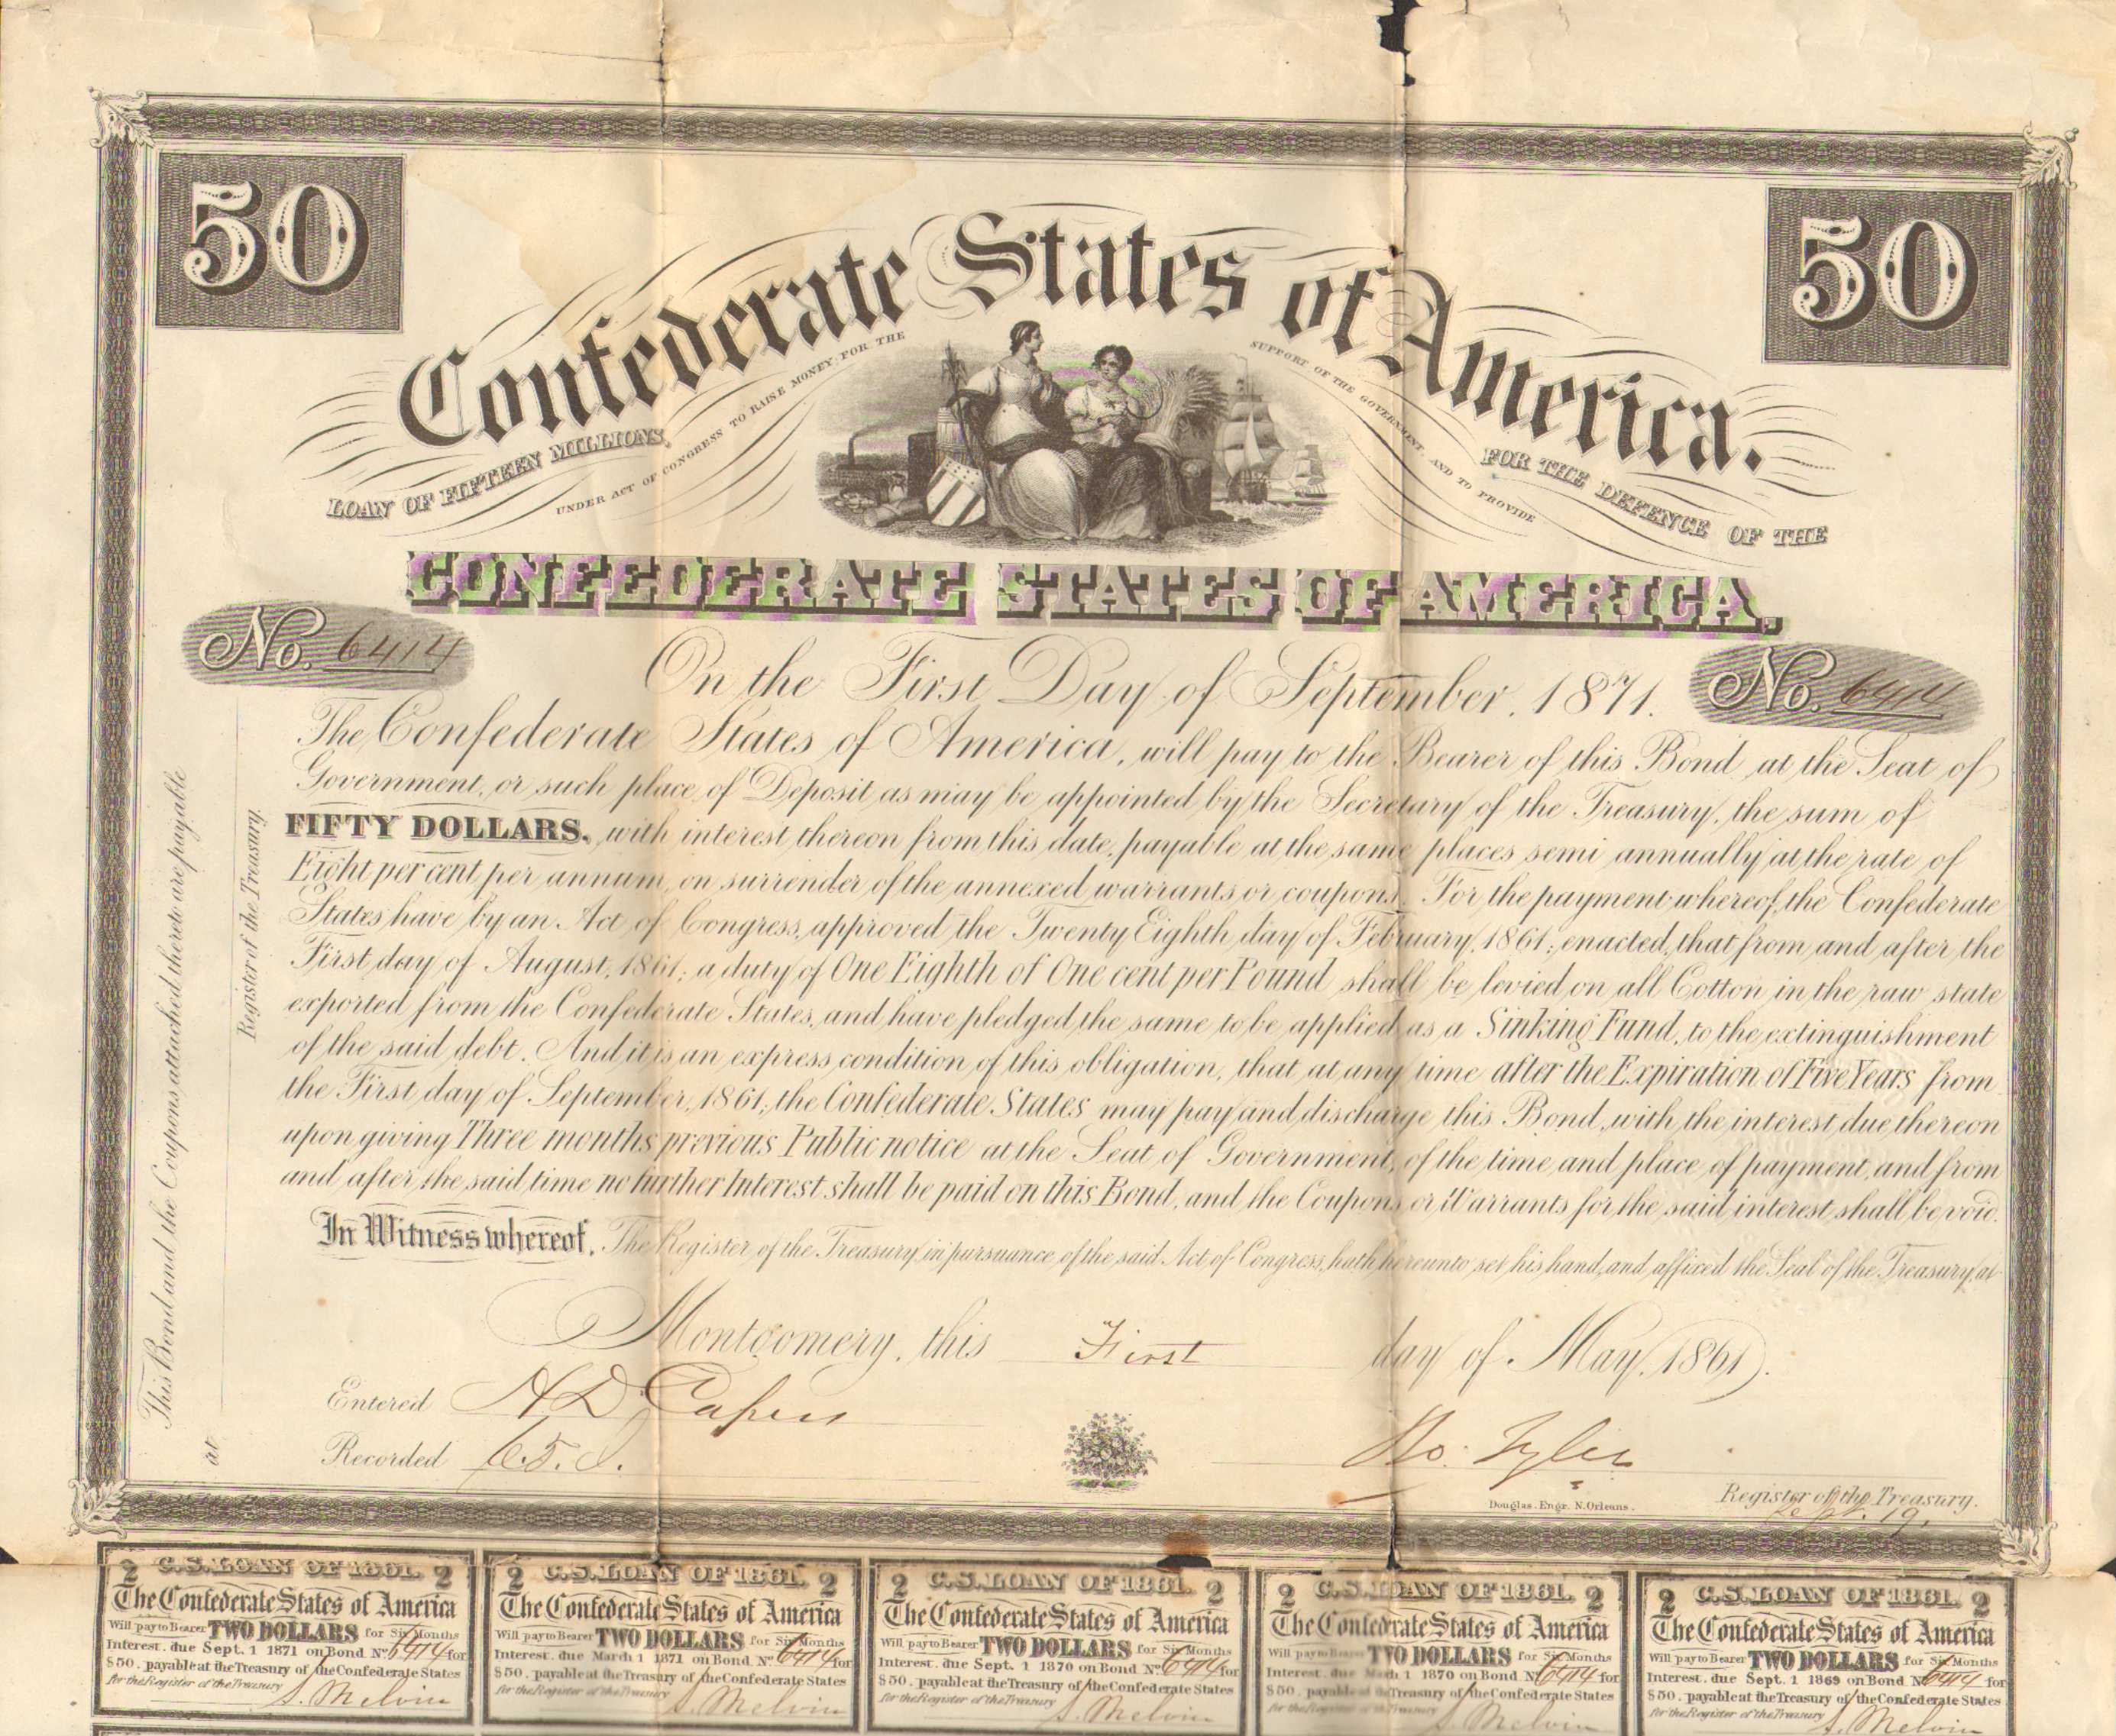 50
50
Confederate States of America.
LOAN OF FIFTEEN MILLIONS,
UNDER ACT OF CONGRESS TO RAISE MONEY FOR THE
SUPPORT OF THE GOVERNMENT, AND TO PROVIDE
FOR THE DEFENCE OF THE
CONFEDERATE STATES OF AMERICA.
No. 6414
No. 6414
On the First Day of September, 1871.
The Confederate States of America, will pay to the Bearer of this Bond at the Seat of
Government, or such place of Deposit as may be appointed by the Secretary of the Treasury, the sum of
FIFTY DOLLARS, with interest thereon from this date, payable at the same places semi annually at the rate of
Eight per cent per annum, on surrender of the annexed warrants or coupons. For the payment whereof, the Confederate
States have by an Act of Congress, approved the Twenty Eighth day of February, 1861; enacted, that from and after the
First day of August, 1861; a duty of One Eighth of One cent per Pound shall be levied on all Cotton in the raw state
exported from the Confederate States, and have pledged the same to be applied as a Sinking Fund, to the extinguishment
of the said debt. And it is an express condition of this obligation, that at any time after the Expiration of Five Years from
the First day of September, 1861; the Confederate States may pay and discharge this Bond, with the interest due thereon
upon giving Three months previous Public notice at the Seat of Government, of the time and place of payment, and from
and after the said time no further Interest shall be paid on this Bond, and the Coupons or Warrants for the said interest shall be void.
In Witness whereof, The Register of the Treasury, in pursuance of the said Act of Congress, hath hereunto set his hand, and affixed the Seal of the Treasury, at
Montgomery, this First day of May, 1861.
Entered A D Capers
Recorded
Ro: Tyler
Douglas. Engr. N. Orleans.
Register of the Treasury.
Sept. 19,
This Bond and the Coupons attached thereto are payable
at
Register of the Treasury.
2 C.S. LOAN OF 1861. 2
The Confederate States of America
Will pay to Bearer TWO DOLLARS for Six Months
Interest, due Sept. 1 1871 on Bond No 6414 for
$50, payable at the Treasury of the Confederate States
for the Register of the Treasury
S. Melvin
2 C.S. LOAN OF 1861. 2
The Confederate States of America
Will pay to Bearer TWO DOLLARS for Six Months
Interest, due March 1 1871 on Bond No. 6414 for
$50, payable at the Treasury of the Confederate States
for the Register of the Treasury
S. Melvin
2 C.S. LOAN OF 1861. 2
The Confederate States of America
Will pay to Bearer TWO DOLLARS for Six Months
Interest, due Sept. 1 1870 on Bond No 6414 for
$50, payable at the Treasury of the Confederate States
for the Register of the Treasury
S. Melvin
2 C.S. LOAN OF 1861. 2
The Confederate States of America
Will pay to Bearer TWO DOLLARS for Six Months
Interest, due March 1 1870 on Bond No 6414 for
$50, payable at the Treasury of the Confederate States
for the Register of the Treasury
S. Melvin
2 C.S. LOAN OF 1861. 2
The Confederate States of America
Will pay to Bearer TWO DOLLARS for Six Months
Interest, due Sept. 1 1869 on Bond No 6414 for
$50, payable at the Treasury of the Confederate States
for the Register of the Treasury
S. Melvin